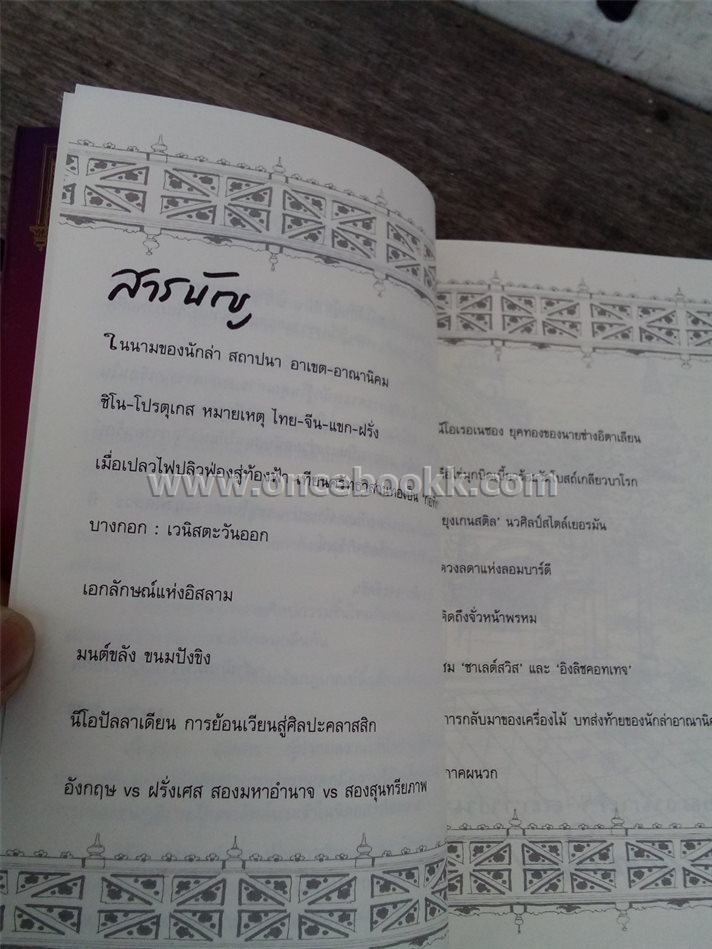 สารบัญ
ในนามของนักล่า สถาปนา อาเขต-อาณานิคม
ชิโน-โปรตุเกส หมายเหตุ ไทย-จีน-แขก-ฝรั่ง
เมื่อเปลวไฟปลิวฟ่องสู่ท้องฟ้า
บางกอก : เวนิสตะวันออก
เอกลักษณ์แห่งอิสลาม
มนต์ขลัง ขนมปังขิง
นีโอปัลลาเดียน การย้อนเวียนสู่ศิลปะคลาสสิก
อังกฤษ vs ฝรั่งเศส สองมหาอำนาจ vs สองสุนทรียภาพ
นีโอเรอเนซอง ยุคทองของนายช่างอิตาเลียน
โบสถ์เกลียวบาโรก
ยุงเกนสติล' นวศิลป์สไตล์เยอรมัน
ดวงลดาแห่งลอมบาร์ดี
คิดถึงจั่วหน้าพรหม
ชม 'ชาเลต์สวิส' และ 'อิงลิชคอทเทจ'
การกลับมาของเครื่องไม้ บทส่งท้ายของนักล่าอาณานิคม
ภาคผนวก
www.oncebookk.com